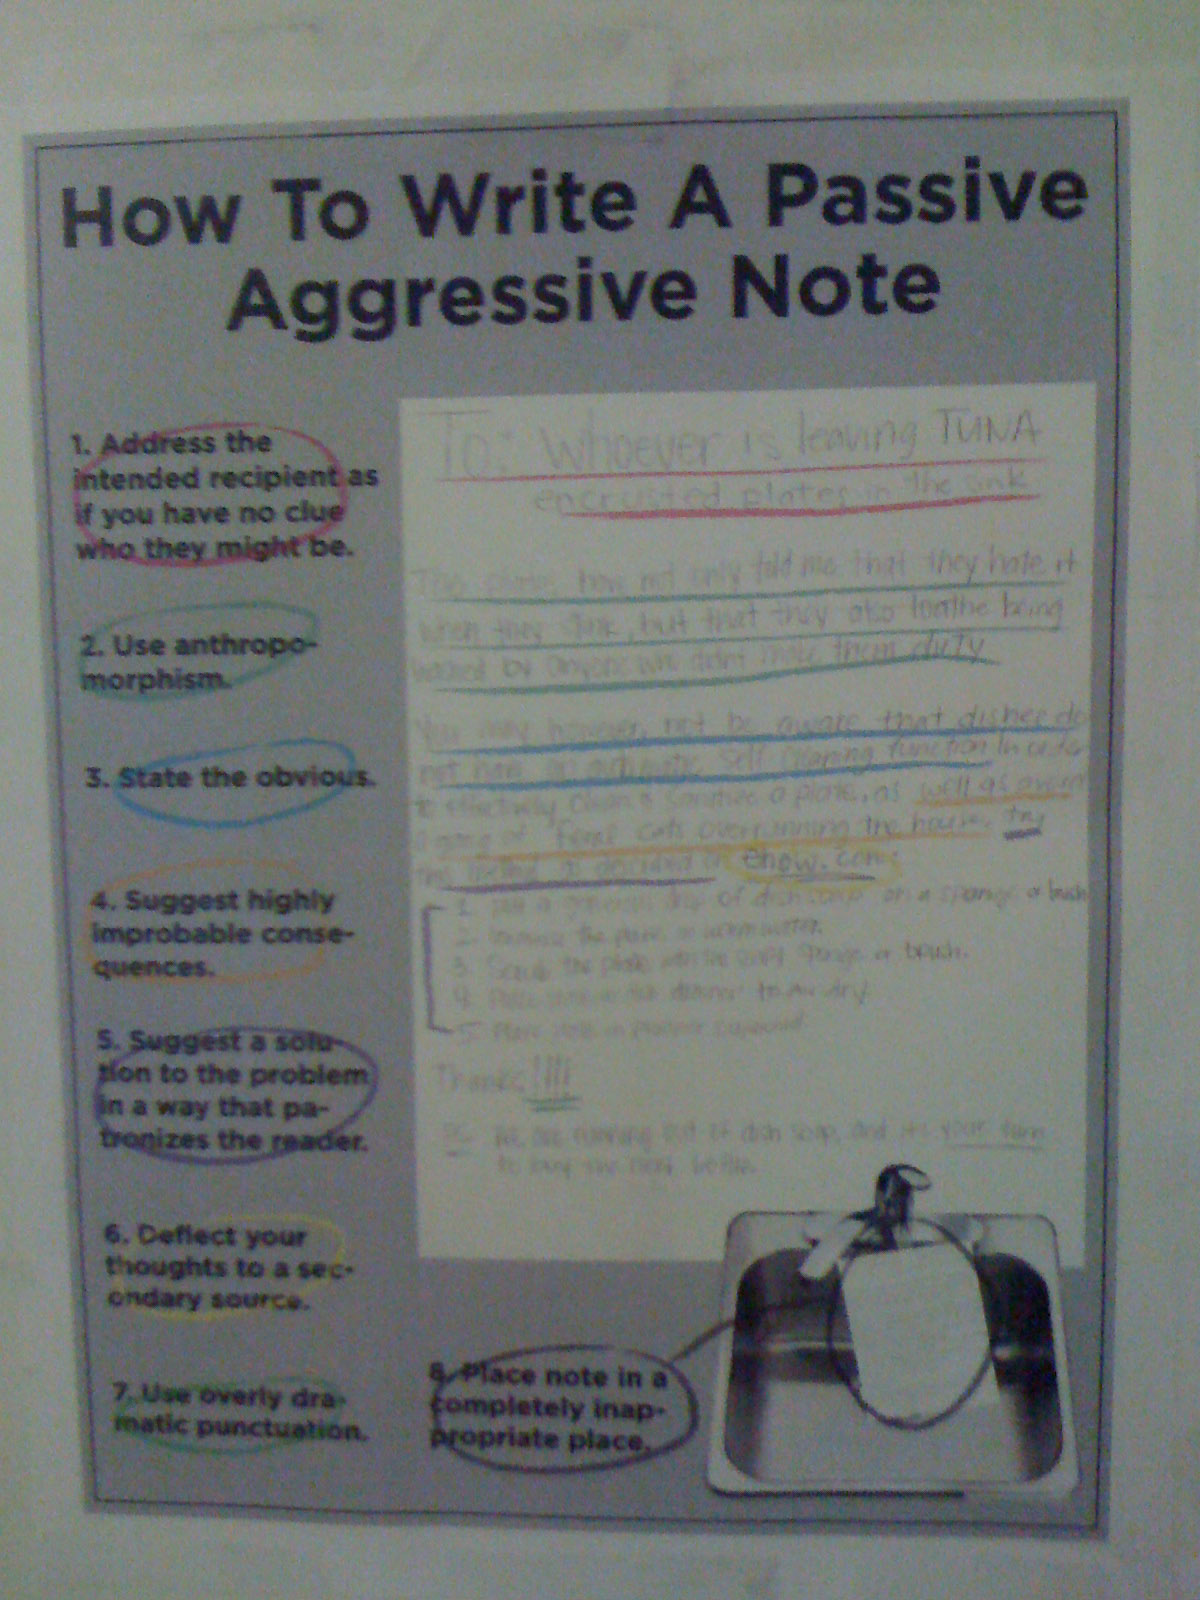 How To Write A Passive
Aggressive Note
1. Address the
intended recipient as
if you have no clue
who they might be.
2. Use anthropo-
morphism.
3. State the obvious.
4. Suggest highly
improbable conse-
quences.
5. Suggest a solu-
tion to the problem
in a way that pa-
tronizes the reader.
6. Deflect your
thoughts to a sec-
ondary source.
7. Use overly dra-
matic punctuation.
8. Place note in a
completely inap-
propriate place.
To: Whoever is leaving TUNA
encrusted plates in the sink
The plates have not only told me that they hate it
when they stink, but that they also loathe being
washed by anyone who didn't make them dirty
You may however, not be aware that dishes do
not have an automatic self cleaning function In order
to effectively clean & sanitize a plate, as well as avoid
a gang of feral cats overrunning the house, try
this method as described on ehow.com:
1. Put a generous drop of dish soap on a sponge or brush
2. Immerse the plate in warm water.
3. Scrub the plate with the soapy sponge or brush.
4. Place in dish drainer to air dry
5. Place in cupboard
Thanks!!!!
PS. We are running out of dish soap, and it's your turn
to buy the next bottle.